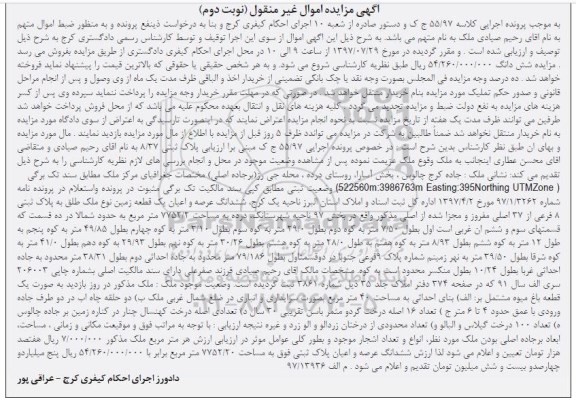 آگهی مزایده اموال غیر منقول (نوبت دوم)
به موجب پرونده اجرایی کلاسه ۵۵/۹۷ ج ک و دستور صادره از شعبه ۱۰ اجرای احکام کیفری کرج و بنا به درخواست ذینفع پرونده و به منظور ضبط اموال متهم
به نام آقای رحیم صیادی ملک به نام متهم می باشد. به شرح ذیل این آگهی اموال از سوی این اجرا توقیف و توسط کارشناس رسمی دادگستری کرج به شرح ذیل
توصیف و ارزیابی شده است . و مقرر گردیده در مورخ ۱۳۹۷/۰۷/۲۹ از ساعت ۹ الی ۱۰ در محل اجرای احکام کیفری دادگستری از طریق مزایده بفروش می رسد
. مزایده شش دانگ ۵۴/۲۶۰/۰۰۰/۰۰۰ ریال طبق نظریه کارشناسی شروع می شود. و به هر شخص حقیقی یا حقوقی که بالاترین قیمت را پیشنهاد نماید فروخته
خواهد شد . ده درصد وجه مزایده فی المجلس بصورت وجه نقد یا چک بانکی تضمینی از خریدار اخذ و الباقی ظرف مدت یک ماه از وی وصول و پس از انجام مراحل
قانونی و صدور حکم تملیک مورد مزایده بنام خریدار منتقل خواهد شد. در صورتی که در مهلت مقرر خریدار وجه مزایده را پرداخت ننماید سپرده وی پس از کسر
هزینه های مزایده به نفع دولت ضبط و مزایده تجدید می گردد . کلیه هزینه های نقل و انتقال بعهده محکوم علیه می باشد که از محل فروش پرداخت خواهد شد
طرفین می توانند ظرف مدت یک هفته از تاریخ مزایده به نحوه انجام مزایده اعتراض نمایند که در اینصورت تا رسیدگی به اعتراض از سوی دادگاه مورد مزایده
به نام خریدار منتقل نخواهد شد ضمناً طالبین شرکت در مزایده می توانند ظرف ۵ روز قبل از مزایده با اطلاع از مال مورد مزایده بازدید نمایند . مال مورد مزایده
و بهای آن طبق نظر کارشناس بدین شرح است . در خصوص پرونده اجرایی ۵۵/۹۷ ج ک مبنی برا ارزیابی پلاک ثبتی ۸/۳۷ به نام آقای رحیم صیادی و متقاضی
آقای محسن عطاری اینجانب به ملک وقوع ملک عزیمت نموده پس از مشاهده وضعیت موجود در محل و انجام بررسی های لازم نظریه کارشناسی را به شرح ذیل
تقدیم می کند: نشانی ملک : جاده کرج چالوس ، بخش آسارا، روستای درده ، محله جی رز(برجاده اصلی) مختصات جغرافیای مرکز ملک مطابق سند تک برگی
(522560m:3986763m Easting:395Northing UTMZone ) وضعیت ثبتی مطابق کپی سند مالکیت تک برگی مثبوت در پرونده واستعلام در پرونده نامه
شماره ۹۷/۱/۳۲۶۲ مورخ ۱۳۹۷/۴/۲ اداره کل ثبت اسناد و املاک استان البرز ناحیه یک کرج، ششدانگ عرصه و اعیان یک قطعه زمین نوع ملک طلق به پلاک ثبتی
۸ فرعی از ۳۷ اصلی مفروز و مجزا شده از اصلی مذکور واقع در بخش ۹۷ ناحیه شهرستانک درده به مساحت ۷۷۵۲/۲ متر مربع به حدود شمالا در ده قسمت که
قسمتهای سوم و ششم آن غربی است اول بطول ۷/۵۰ متر به کوه دوم بطول ۳/۹۰ متر به کوه سوم بطول ۳/۹۰ متر به کوه چهارم بطول ۴۹/۸۵ متر به کوه پنجم به
طول ۱۲ متر به کوه ششم بطول ۸/۹۳ متر به کوه هفتم به طول ۲۸/۰ متر به کوه هشتم بطول ۲۰/۲۶ متر به کوه نهم بطول ۲۹/۹۳ به کوه دهم بطول ۴۱/۰ متر به
کوه شرقا بطول ۳۹/۵۰ متر به نهر زمینم شماره پلاک ۹ فرعی جنوبا در دوقسمت اول بطول ۷۹/۱۸۶ متر محدود به جاده احداثی دوم بطول ۳۸/۳۱ متر محدود به جاده
احداثی غربا بطول ۱۰/۲۴ بطول متکسر محدود است به جاده احداثی . مشخصات مالک آقای رحیم صیادی فرزند صفرعلی دارای سند مالکیت اصلی بشماره چاپی ۲۰۶۰۰۳
سری الف سال ۹۱ که در صفحه ۳۷۴ دفتر املاک جلد ۳۵ ذیل شماره ۳۸۶۱ ثبت گردیده است. وضعیت موجود ملک : ملک مذکور در روز بازدید به صورت یک
قطعه باغ میوه مشتمل بر: الف) بنای احداثی به مساحت ۴۰ متر مربع بصورت انباری وانبار در ضلع شمال غربی ملک ب) دو حلقه چاه آب در دو طرف جاده
ورودی با عمق حدود ۴ تا ۶ متر ج ) تعداد ۱۶ اصله درخت گردو مثمر باسن تقریبی ۲۰ سال د) تعدادی اصله درخت کهنسال چنار در کناره زمین بر جاده چالوس
ه) تعداد ۱۰۰ درخت گیلاس و البالو و) تعداد محدودی از درختان زردآلو و آلو زرد و غیره نتیجه ارزیابی : با توجه به مراتب فوق و موقیعت مکانی و زمانی ، مساحت،
ابعاد برجاده اصلی بودن ملک مورد نظر، انواع و تعداد اشجار موجود و بطور کلی عوامل موثر در ارزیابی ارزش هر متر مربع ملک مذکور ۷/۰۰۰/۰۰۰ ریال هفتصد
هزار تومان تعیین و اعلام می شود لذا ارزش ششدانگ عرصه و اعیان پلاک ثبتی فوق به مساحت ۷۷۵۲/۲۰ متر مربع برابر با ۵۴/۲۶۰/۰۰۰/۰۰۰ ریال پنج میلیاردو
چهارصدو بیست و شش میلیون تومان تقدیم و اعلام می شود . م الف ۹۷/۱۳۹۳۶
دادورز اجرای احکام کیفری کرج - عراقی پور